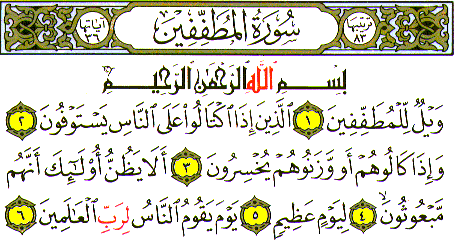 ترتيبها ٨٣ سُورَةُ المُطَفِّفِين آياتها ٣٦
بِسْمِ ٱللَّهِ ٱلرَّحْمَٰنِ ٱلرَّحِيمِ
وَيْلٌ لِّلْمُطَفِّفِينَ ١ ٱلَّذِينَ إِذَا ٱكْتَالُوا۟ عَلَى ٱلنَّاسِ يَسْتَوْفُونَ ٢
وَإِذَا كَالُوهُمْ أَو وَّزَنُوهُمْ يُخْسِرُونَ ٣ أَلَا يَظُنُّ أُو۟لَٰٓئِكَ أَنَّهُم
مَّبْعُوثُونَ ٤ لِيَوْمٍ عَظِيمٍ ٥ يَوْمَ يَقُومُ ٱلنَّاسُ لِرَبِّ ٱلْعَٰلَمِينَ ٦